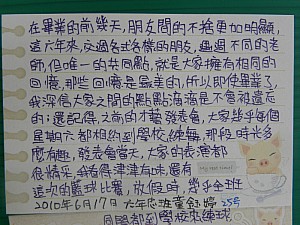 在畢業的前幾天,朋友間的不捨更加明顯,
這六年來,交過各式各樣的朋友,遇過不同的老
師,但唯一的共同點,就是大家擁有相同的
回憶,那些回憶是最美的,所以即使畢業了,
我深信大家之間的點點滴滴是不會被遺忘
的;還記得,之前的才藝發表會,大家幾乎每個
星期六都相約到學校練舞,那段時光多
麼有趣,發表會當天,大家的表演都
很精采,看得津津有味,還有
這次的籃球比賽,放假時,幾乎全班
2010年6月17日 六年忠班 童鈺婷 25號
同學都到學校來練球